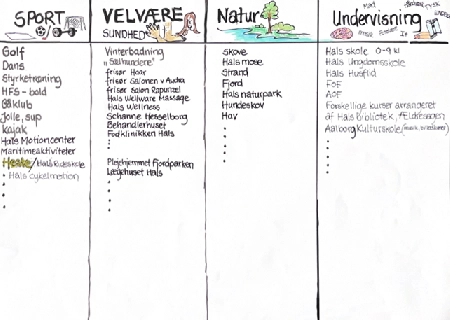 SPORT
Golf
Dans
Styrketræning
HFS - bold
Gåklub
Jolle, sup
Kajak
Hals Motioncenter
Maritimeaktiviteter
Heste/Hals Rideskole
• Hals cykelmotion
VELVÆRE
SUNDHED
Vinterbadning
"Salhundene"
frisør Haar
frisør Salonen v Acaba
frisør Salon Rapunzel
Hals Wellware Massage
Hals Wellness
Schanne Hesselborg
Behandlerhuset
Fodklinikken Hals
Plejehjemmet Fjordparken
Lægehuset Hals
Natur
Skove
Hals mose
Strand
Fjord
Hals naturpark
Hundeskov
Hav
Undervisning
Hals skole 0-9 kl
Hals Ungdomsskole
Hals Husflid
FOF
AOF
Forskellige kurser arrangeret
af Hals Bibliotek, Ældresagen
Aalborg Kulturskole